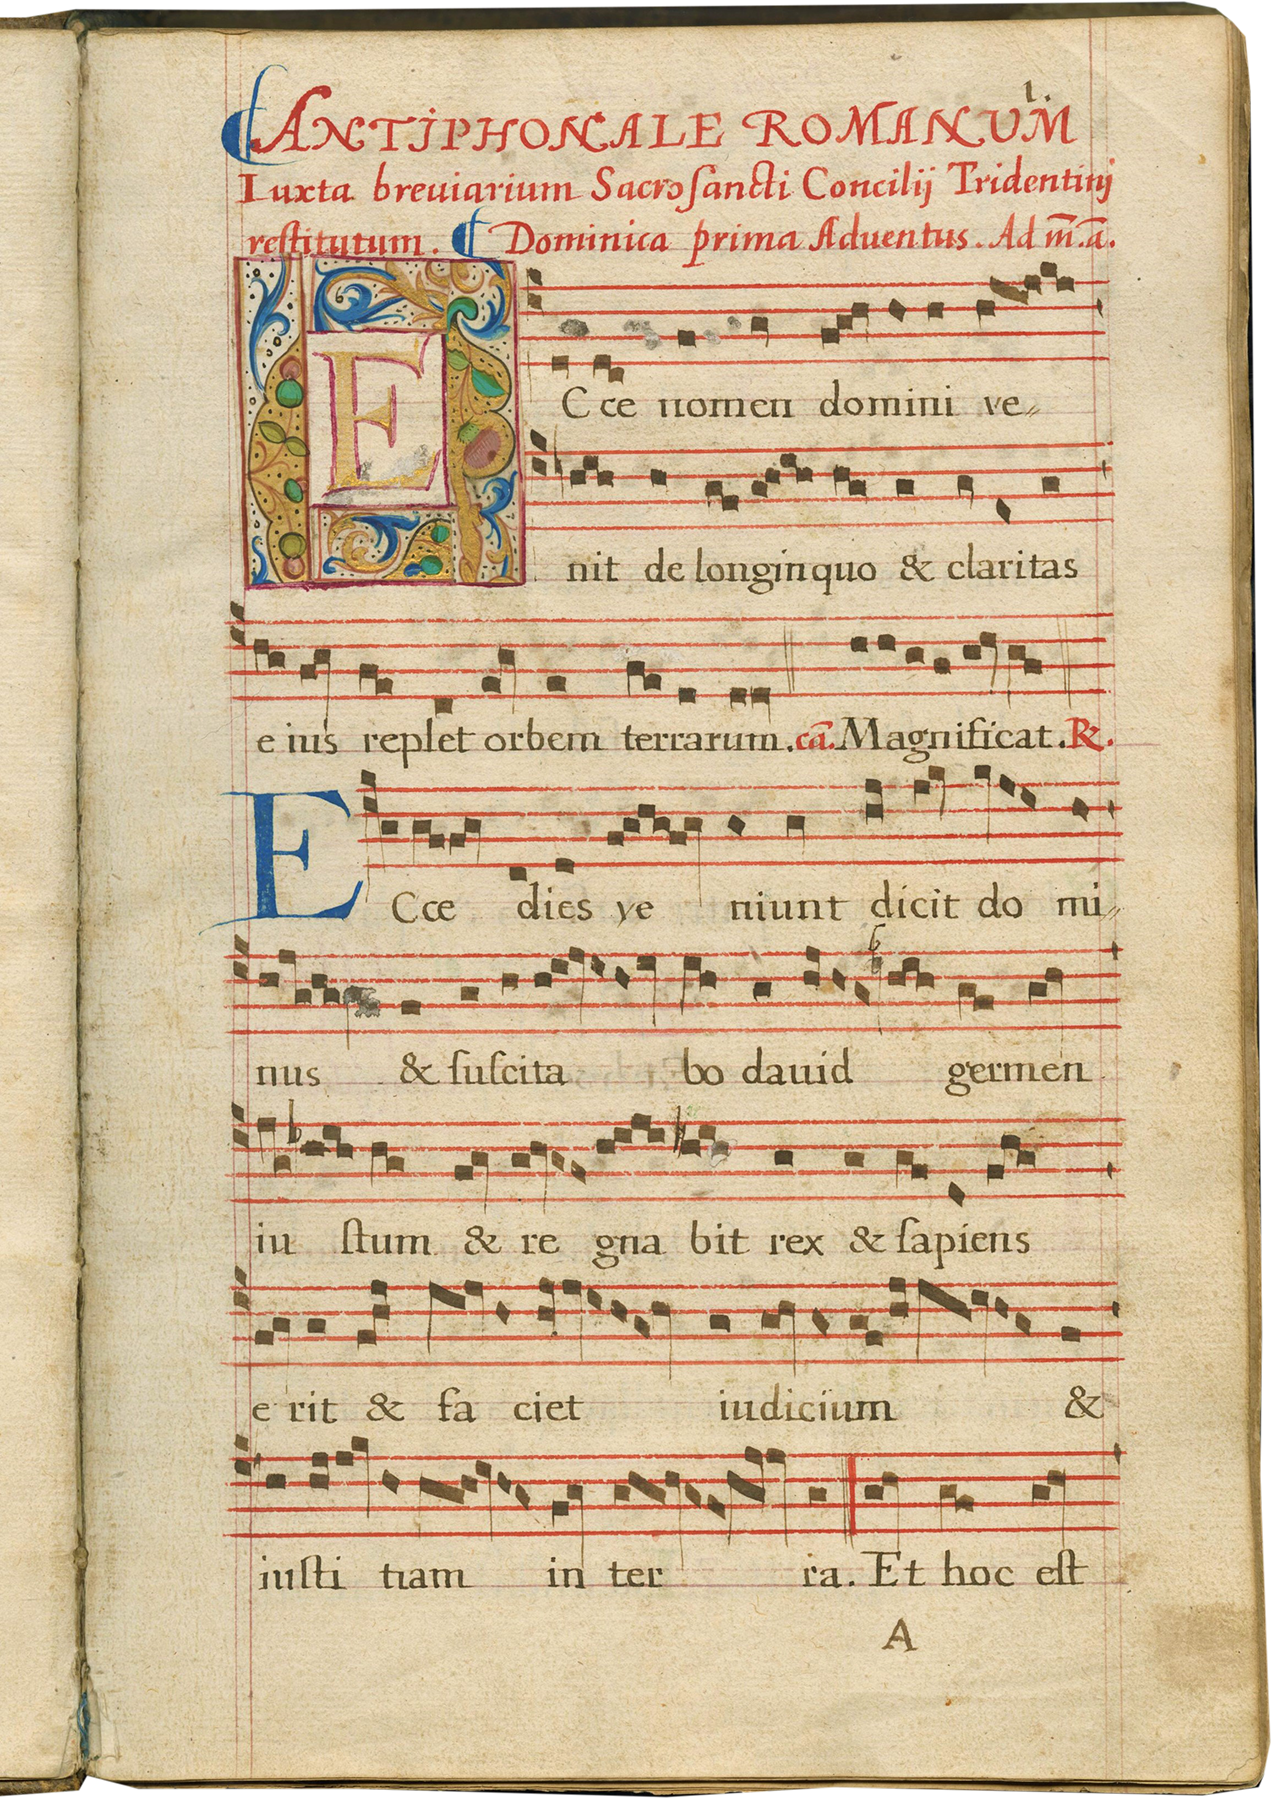 1.
ANTIPHONALE ROMANUM
Iuxta breuiarium Sacrosancti Concilij Tridentinj
restitutum. Dominica prima Aduentus. Ad m̄.ā.
ECce nomen domini ve
nit de longinquo & claritas
eius replet orbem terrarum. cā. Magnificat. R.
ECce dies ve niunt dicit do mi
nus & suscita bo dauid germen
iu stum & re gna bit rex & sapiens
e rit & fa ciet iudicium &
iusti tiam in ter ra. Et hoc est
A